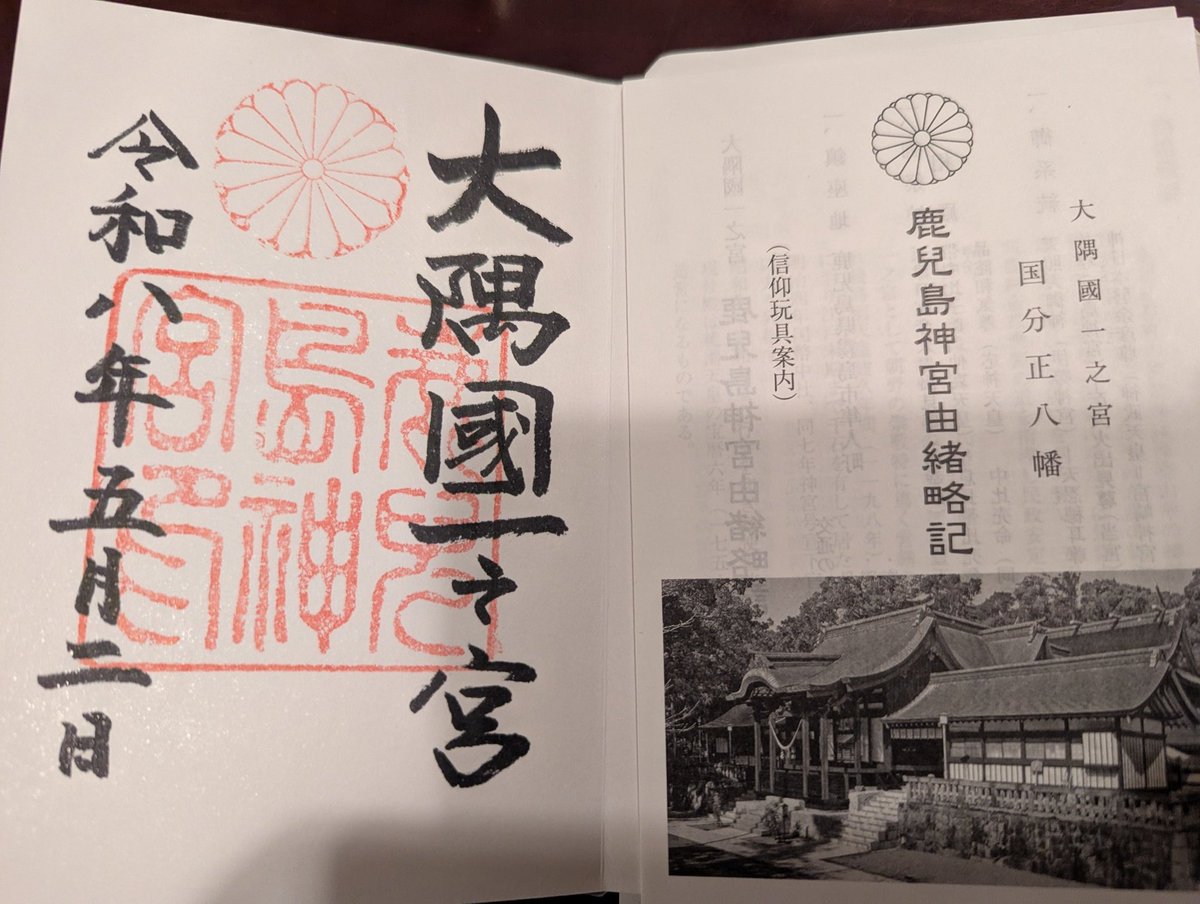 大隅國一之宮
国分正八幡
鹿兒島神宮由緒略記
(信仰玩具案内)
大隅國一之宮
鹿兒
島神
宮印
令和八年五月二日